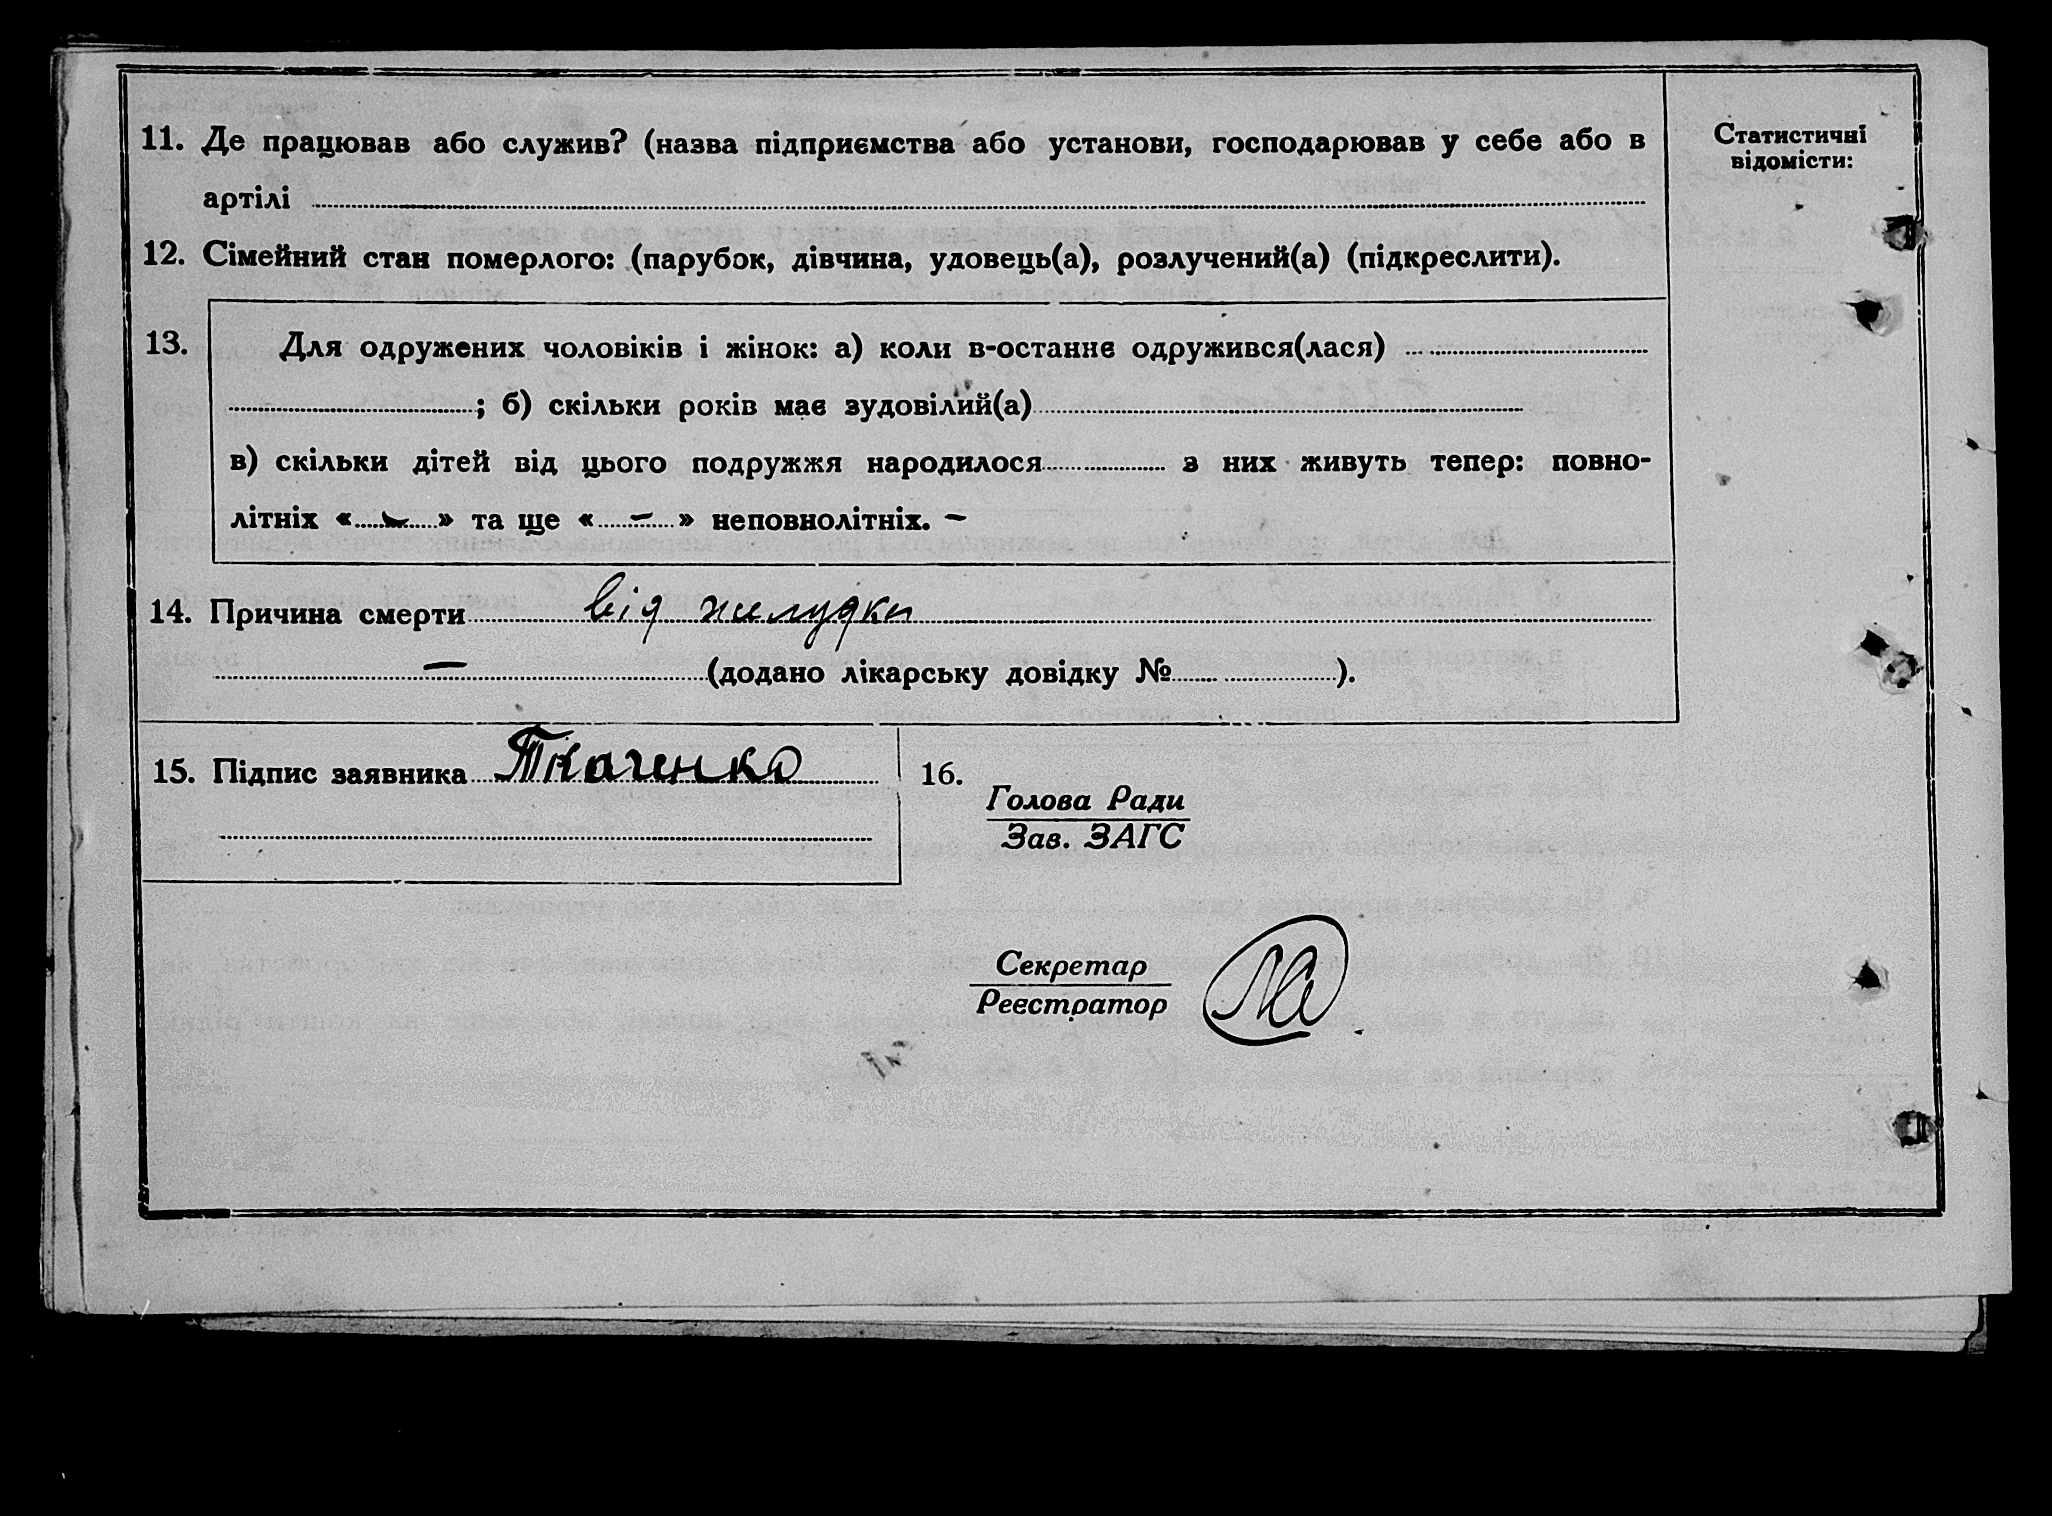 11. Де працював або служив? (назва підприємства або установи, господарював у себе або в
артілі
Статистичні
відомісти:
12. Сімейний стан померлого: (парубок, дівчина, удовець(а), розлучений(а) (підкреслити).
13. Для одружених чоловіків і жінок: а) коли в-останнє одружився(лася)
; б) скільки років має зудовілий(а)
в) скільки дітей від цього подружжя народилося з них живуть тепер: повно-
літніх « — » та ще « — » неповнолітніх. —
14. Причина смерти від жилудки
— (додано лікарську довідку № ).
15. Підпис заявника Ткаченко
16.
Голова Ради
Зав. ЗАГС
Секретар
Реєстратор